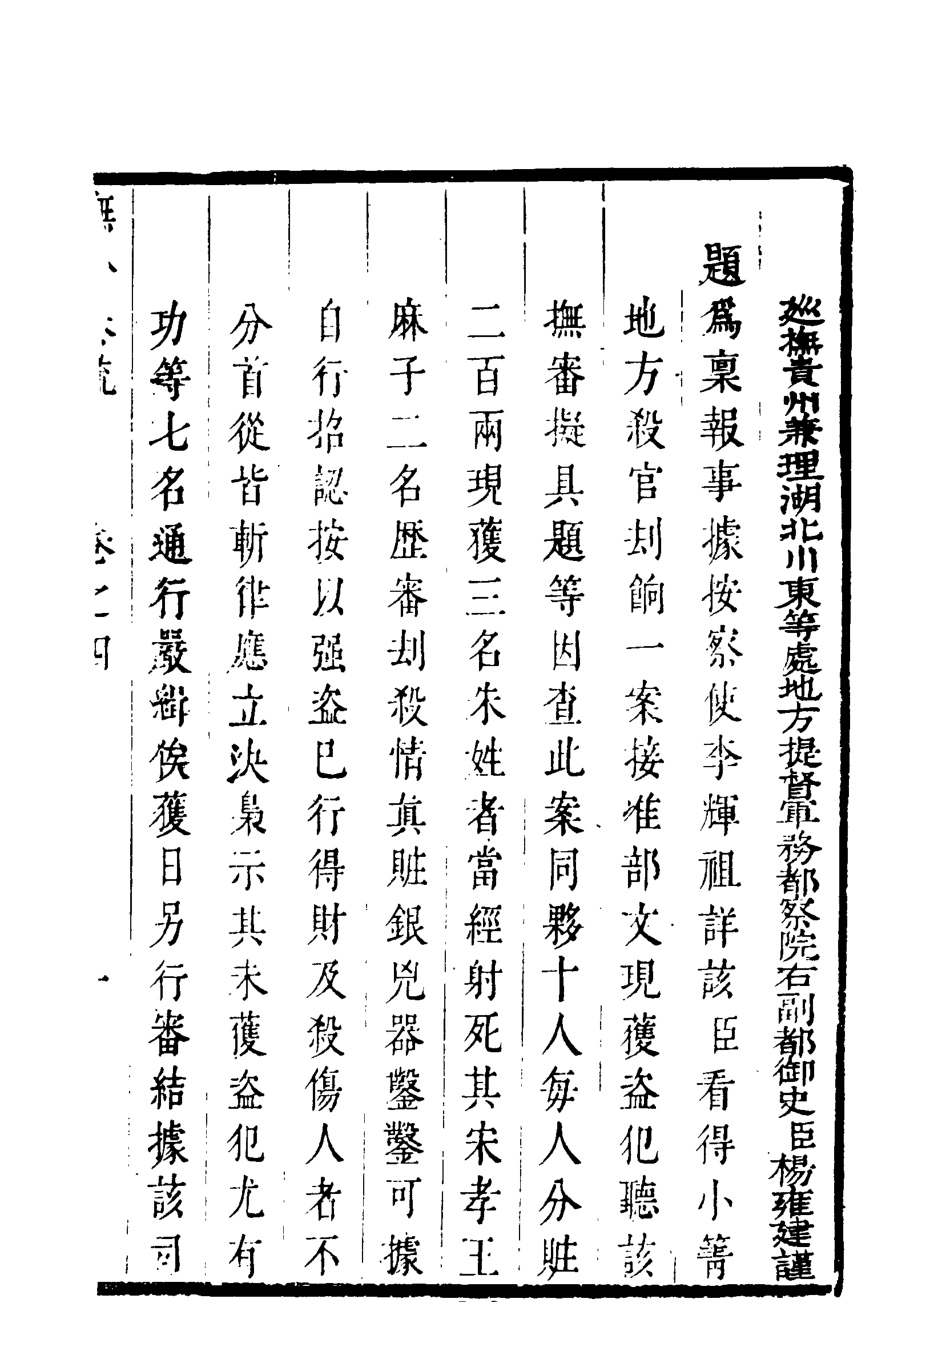 巡撫貴州兼理湖北川東等處地方提督軍務都察院右副都御史臣楊雍建謹
題爲稟報事據按察使李輝祖詳該臣看得小箐
地方殺官刦餉一案接准部文現獲盗犯聽該
撫審擬具題等因查此案同夥十人每人分賍
二百兩現獲三名朱姓者當經射死其宋孝王
麻子二名歴審刦殺情眞賍銀兇器鑿鑿可據
自行招認按以强盗巳行得財及殺傷人者不
分首從皆斬律應立決梟示其未獲盗犯尤有
功等七名通行嚴緝俟獲日另行審結據該司
撫 疏 卷之四 一